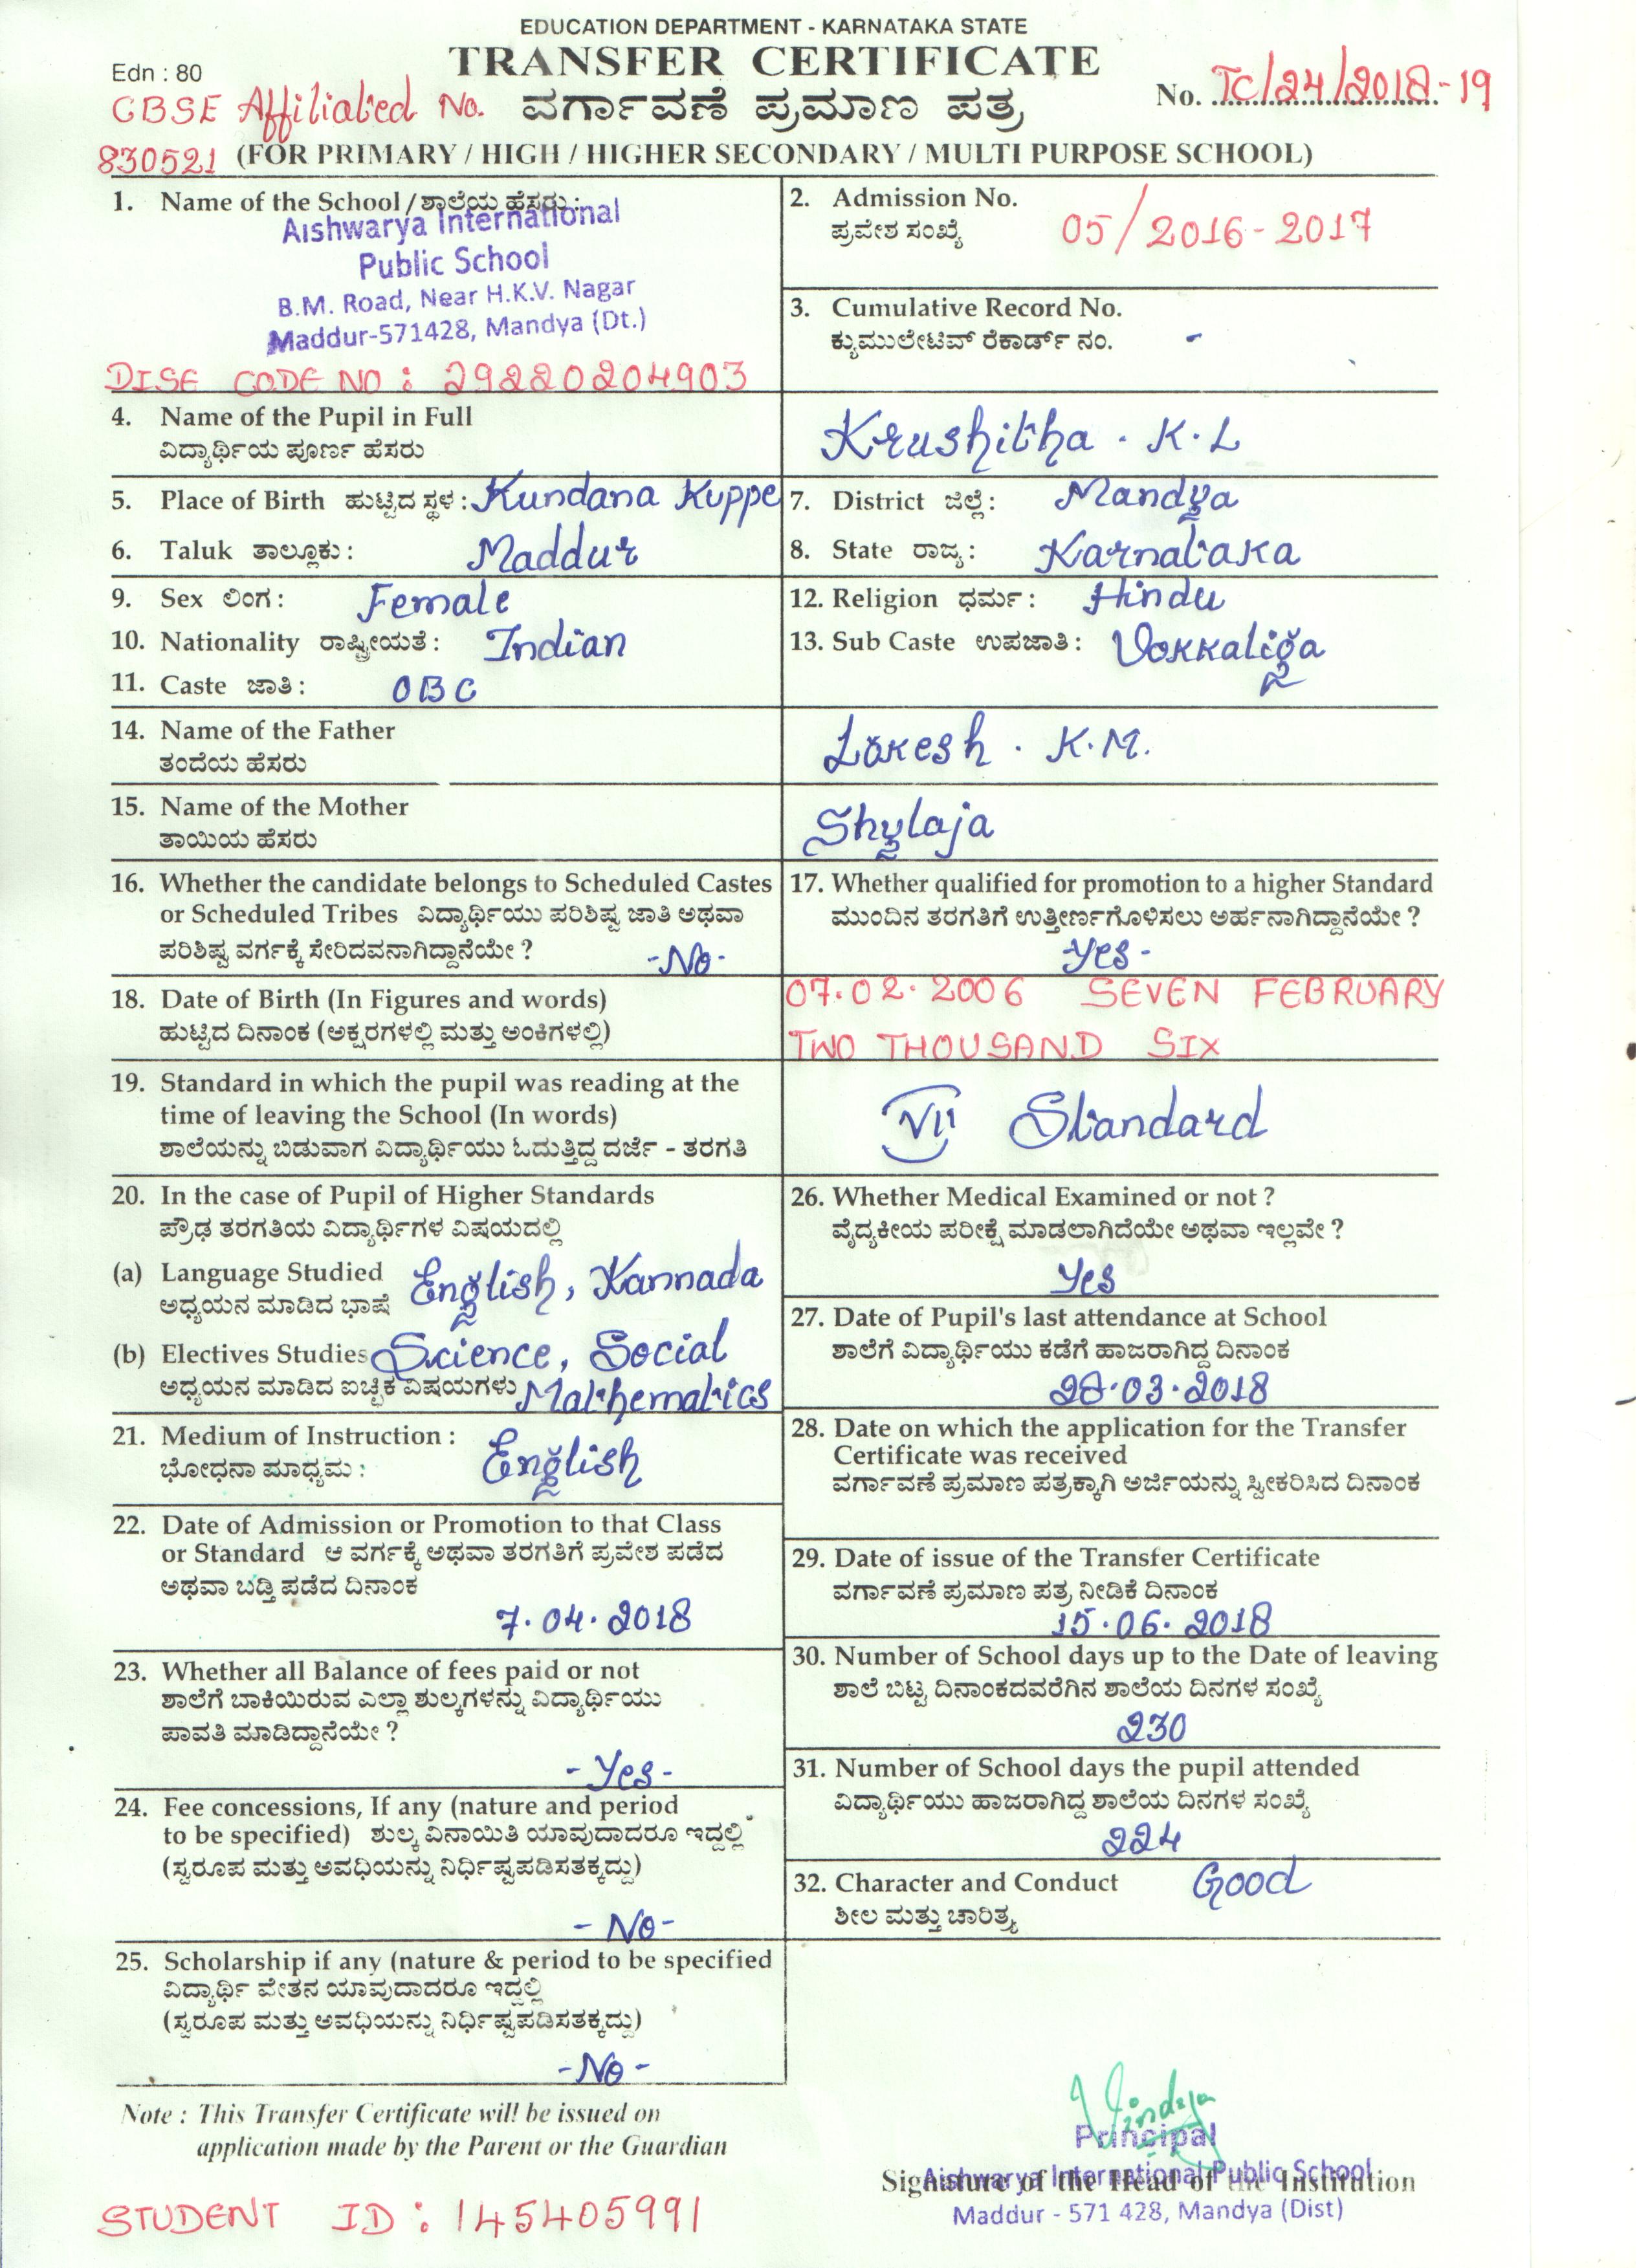 EDUCATION DEPARTMENT - KARNATAKA STATE
Edn : 80
TRANSFER CERTIFICATE
CBSE Affiliated No. ವರ್ಗಾವಣೆ ಪ್ರಮಾಣ ಪತ್ರ
No. TC/24/2018-19
830521 (FOR PRIMARY / HIGH / HIGHER SECONDARY / MULTI PURPOSE SCHOOL)
1. Name of the School / ಶಾಲೆಯ ಹೆಸರು :
Aishwarya International
Public School
B.M. Road, Near H.K.V. Nagar
Maddur-571428, Mandya (Dt.)
DISE CODE NO : 29220204903
2. Admission No.
ಪ್ರವೇಶ ಸಂಖ್ಯೆ 05/2016-2017
3. Cumulative Record No.
ಕ್ಯುಮುಲೇಟಿವ್ ರೆಕಾರ್ಡ್ ನಂ. -
4. Name of the Pupil in Full
ವಿದ್ಯಾರ್ಥಿಯ ಪೂರ್ಣ ಹೆಸರು
Krushitha . K.L
5. Place of Birth ಹುಟ್ಟಿದ ಸ್ಥಳ : Kundana Kuppe
6. Taluk ತಾಲ್ಲೂಕು : Maddur
7. District ಜಿಲ್ಲೆ : Mandya
8. State ರಾಜ್ಯ : Karnataka
9. Sex ಲಿಂಗ : Female
10. Nationality ರಾಷ್ಟ್ರೀಯತೆ : Indian
11. Caste ಜಾತಿ : OBC
12. Religion ಧರ್ಮ : Hindu
13. Sub Caste ಉಪಜಾತಿ : Vokkaliga
14. Name of the Father
ತಂದೆಯ ಹೆಸರು
Lokesh . K.M.
15. Name of the Mother
ತಾಯಿಯ ಹೆಸರು
Shylaja
16. Whether the candidate belongs to Scheduled Castes
or Scheduled Tribes ವಿದ್ಯಾರ್ಥಿಯು ಪರಿಶಿಷ್ಟ ಜಾತಿ ಅಥವಾ
ಪರಿಶಿಷ್ಟ ವರ್ಗಕ್ಕೆ ಸೇರಿದವನಾಗಿದ್ದಾನೆಯೇ ? -No-
17. Whether qualified for promotion to a higher Standard
ಮುಂದಿನ ತರಗತಿಗೆ ಉತ್ತೀರ್ಣಗೊಳಿಸಲು ಅರ್ಹನಾಗಿದ್ದಾನೆಯೇ ?
Yes -
18. Date of Birth (In Figures and words)
ಹುಟ್ಟಿದ ದಿನಾಂಕ (ಅಕ್ಷರಗಳಲ್ಲಿ ಮತ್ತು ಅಂಕಿಗಳಲ್ಲಿ)
07.02.2006 SEVEN FEBRUARY
TWO THOUSAND SIX
19. Standard in which the pupil was reading at the
time of leaving the School (In words)
ಶಾಲೆಯನ್ನು ಬಿಡುವಾಗ ವಿದ್ಯಾರ್ಥಿಯು ಓದುತ್ತಿದ್ದ ದರ್ಜೆ - ತರಗತಿ
VII Standard
20. In the case of Pupil of Higher Standards
ಪ್ರೌಢ ತರಗತಿಯ ವಿದ್ಯಾರ್ಥಿಗಳ ವಿಷಯದಲ್ಲಿ
(a) Language Studied English, Kannada
ಅಧ್ಯಯನ ಮಾಡಿದ ಭಾಷೆ
(b) Electives Studies Science, Social
ಅಧ್ಯಯನ ಮಾಡಿದ ಐಚ್ಛಿಕ ವಿಷಯಗಳು Mathematics
21. Medium of Instruction : English
ಭೋಧನಾ ಮಾಧ್ಯಮ :
22. Date of Admission or Promotion to that Class
or Standard ಆ ವರ್ಗಕ್ಕೆ ಅಥವಾ ತರಗತಿಗೆ ಪ್ರವೇಶ ಪಡೆದ
ಅಥವಾ ಬಡ್ತಿ ಪಡೆದ ದಿನಾಂಕ
7.04.2018
23. Whether all Balance of fees paid or not
ಶಾಲೆಗೆ ಬಾಕಿಯಿರುವ ಎಲ್ಲಾ ಶುಲ್ಕಗಳನ್ನು ವಿದ್ಯಾರ್ಥಿಯು
ಪಾವತಿ ಮಾಡಿದ್ದಾನೆಯೇ ?
- Yes -
24. Fee concessions, If any (nature and period
to be specified) ಶುಲ್ಕ ವಿನಾಯಿತಿ ಯಾವುದಾದರೂ ಇದ್ದಲ್ಲಿ
(ಸ್ವರೂಪ ಮತ್ತು ಅವಧಿಯನ್ನು ನಿರ್ಧಿಷ್ಟಪಡಿಸತಕ್ಕದ್ದು)
- No -
25. Scholarship if any (nature & period to be specified
ವಿದ್ಯಾರ್ಥಿ ವೇತನ ಯಾವುದಾದರೂ ಇದ್ದಲ್ಲಿ
(ಸ್ವರೂಪ ಮತ್ತು ಅವಧಿಯನ್ನು ನಿರ್ಧಿಷ್ಟಪಡಿಸತಕ್ಕದ್ದು)
- No -
26. Whether Medical Examined or not ?
ವೈದ್ಯಕೀಯ ಪರೀಕ್ಷೆ ಮಾಡಲಾಗಿದೆಯೇ ಅಥವಾ ಇಲ್ಲವೇ ?
Yes
27. Date of Pupil's last attendance at School
ಶಾಲೆಗೆ ವಿದ್ಯಾರ್ಥಿಯು ಕಡೆಗೆ ಹಾಜರಾಗಿದ್ದ ದಿನಾಂಕ
28.03.2018
28. Date on which the application for the Transfer
Certificate was received
ವರ್ಗಾವಣೆ ಪ್ರಮಾಣ ಪತ್ರಕ್ಕಾಗಿ ಅರ್ಜಿಯನ್ನು ಸ್ವೀಕರಿಸಿದ ದಿನಾಂಕ
29. Date of issue of the Transfer Certificate
ವರ್ಗಾವಣೆ ಪ್ರಮಾಣ ಪತ್ರ ನೀಡಿಕೆ ದಿನಾಂಕ
15.06.2018
30. Number of School days up to the Date of leaving
ಶಾಲೆ ಬಿಟ್ಟ ದಿನಾಂಕದವರೆಗಿನ ಶಾಲೆಯ ದಿನಗಳ ಸಂಖ್ಯೆ
230
31. Number of School days the pupil attended
ವಿದ್ಯಾರ್ಥಿಯು ಹಾಜರಾಗಿದ್ದ ಶಾಲೆಯ ದಿನಗಳ ಸಂಖ್ಯೆ
224
32. Character and Conduct Good
ಶೀಲ ಮತ್ತು ಚಾರಿತ್ರ್ಯ
Note : This Transfer Certificate will be issued on
application made by the Parent or the Guardian
STUDENT ID : 145405991
Principal
Aishwarya International Public School
Signature of the Head of the Institution
Maddur - 571 428, Mandya (Dist)